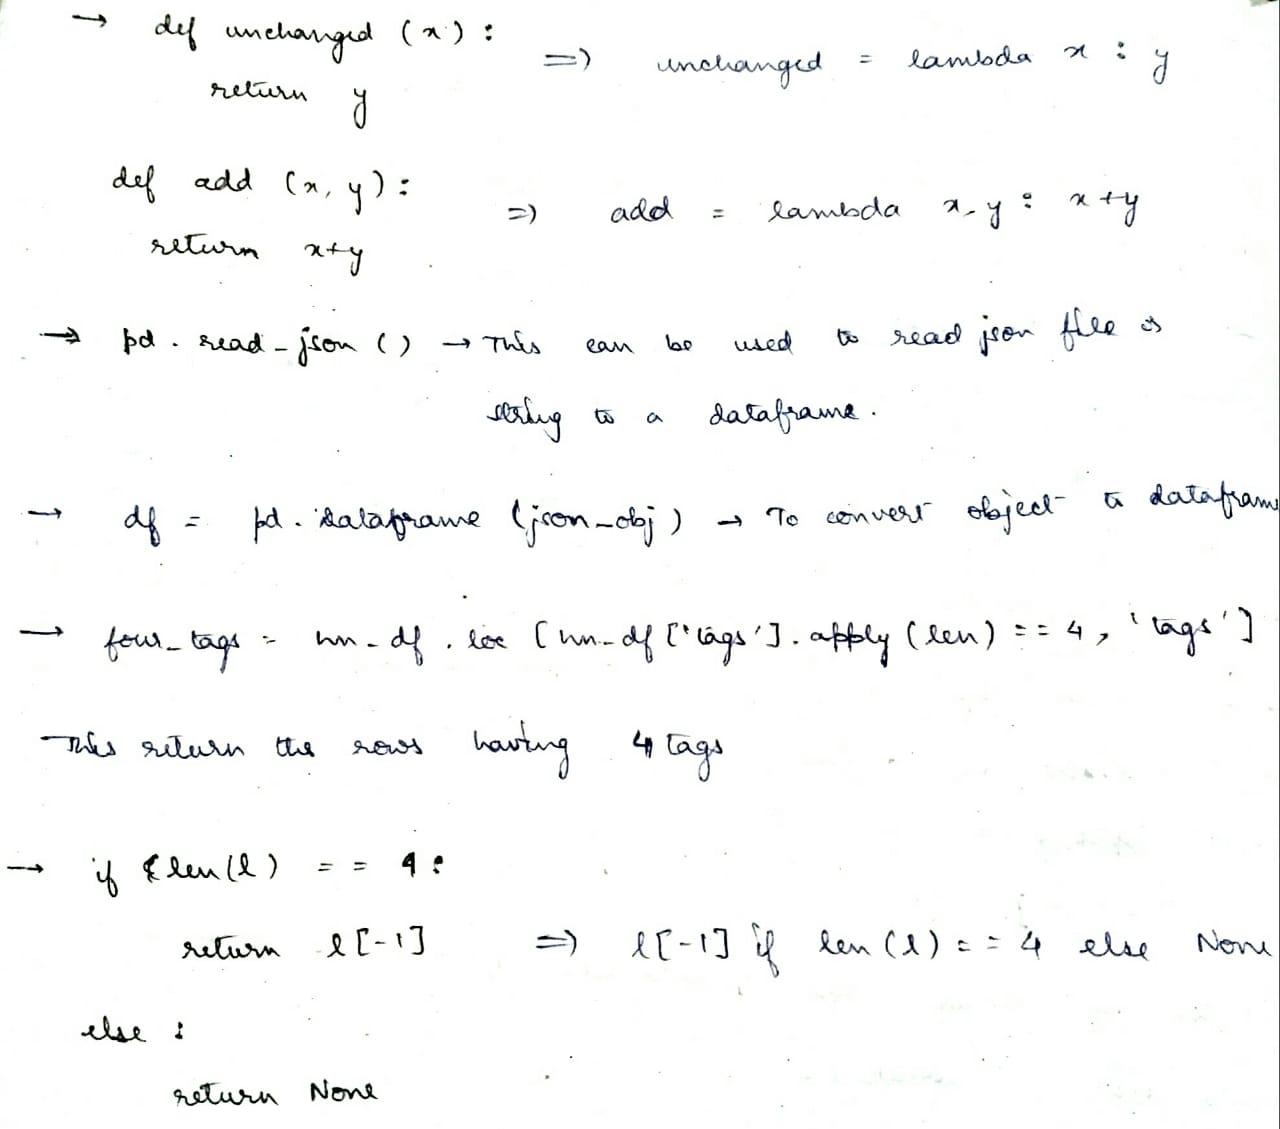 → def unchanged (x) :
return y
=> unchanged = lambda x : y
def add (x, y) :
return x+y
=> add = lambda x, y : x+y
→ pd . read_json () → This can be used to read json file or
string to a dataframe.
→ df = pd . dataframe (json_obj) → To convert object to dataframe
→ four_tags = hn_df . loc [hn_df ['tags'] . apply (len) == 4, 'tags']
This return the rows having 4 tags
→ if len(l) == 4 :
return l[-1]
=> l[-1] if len(l) == 4 else None
else :
return None